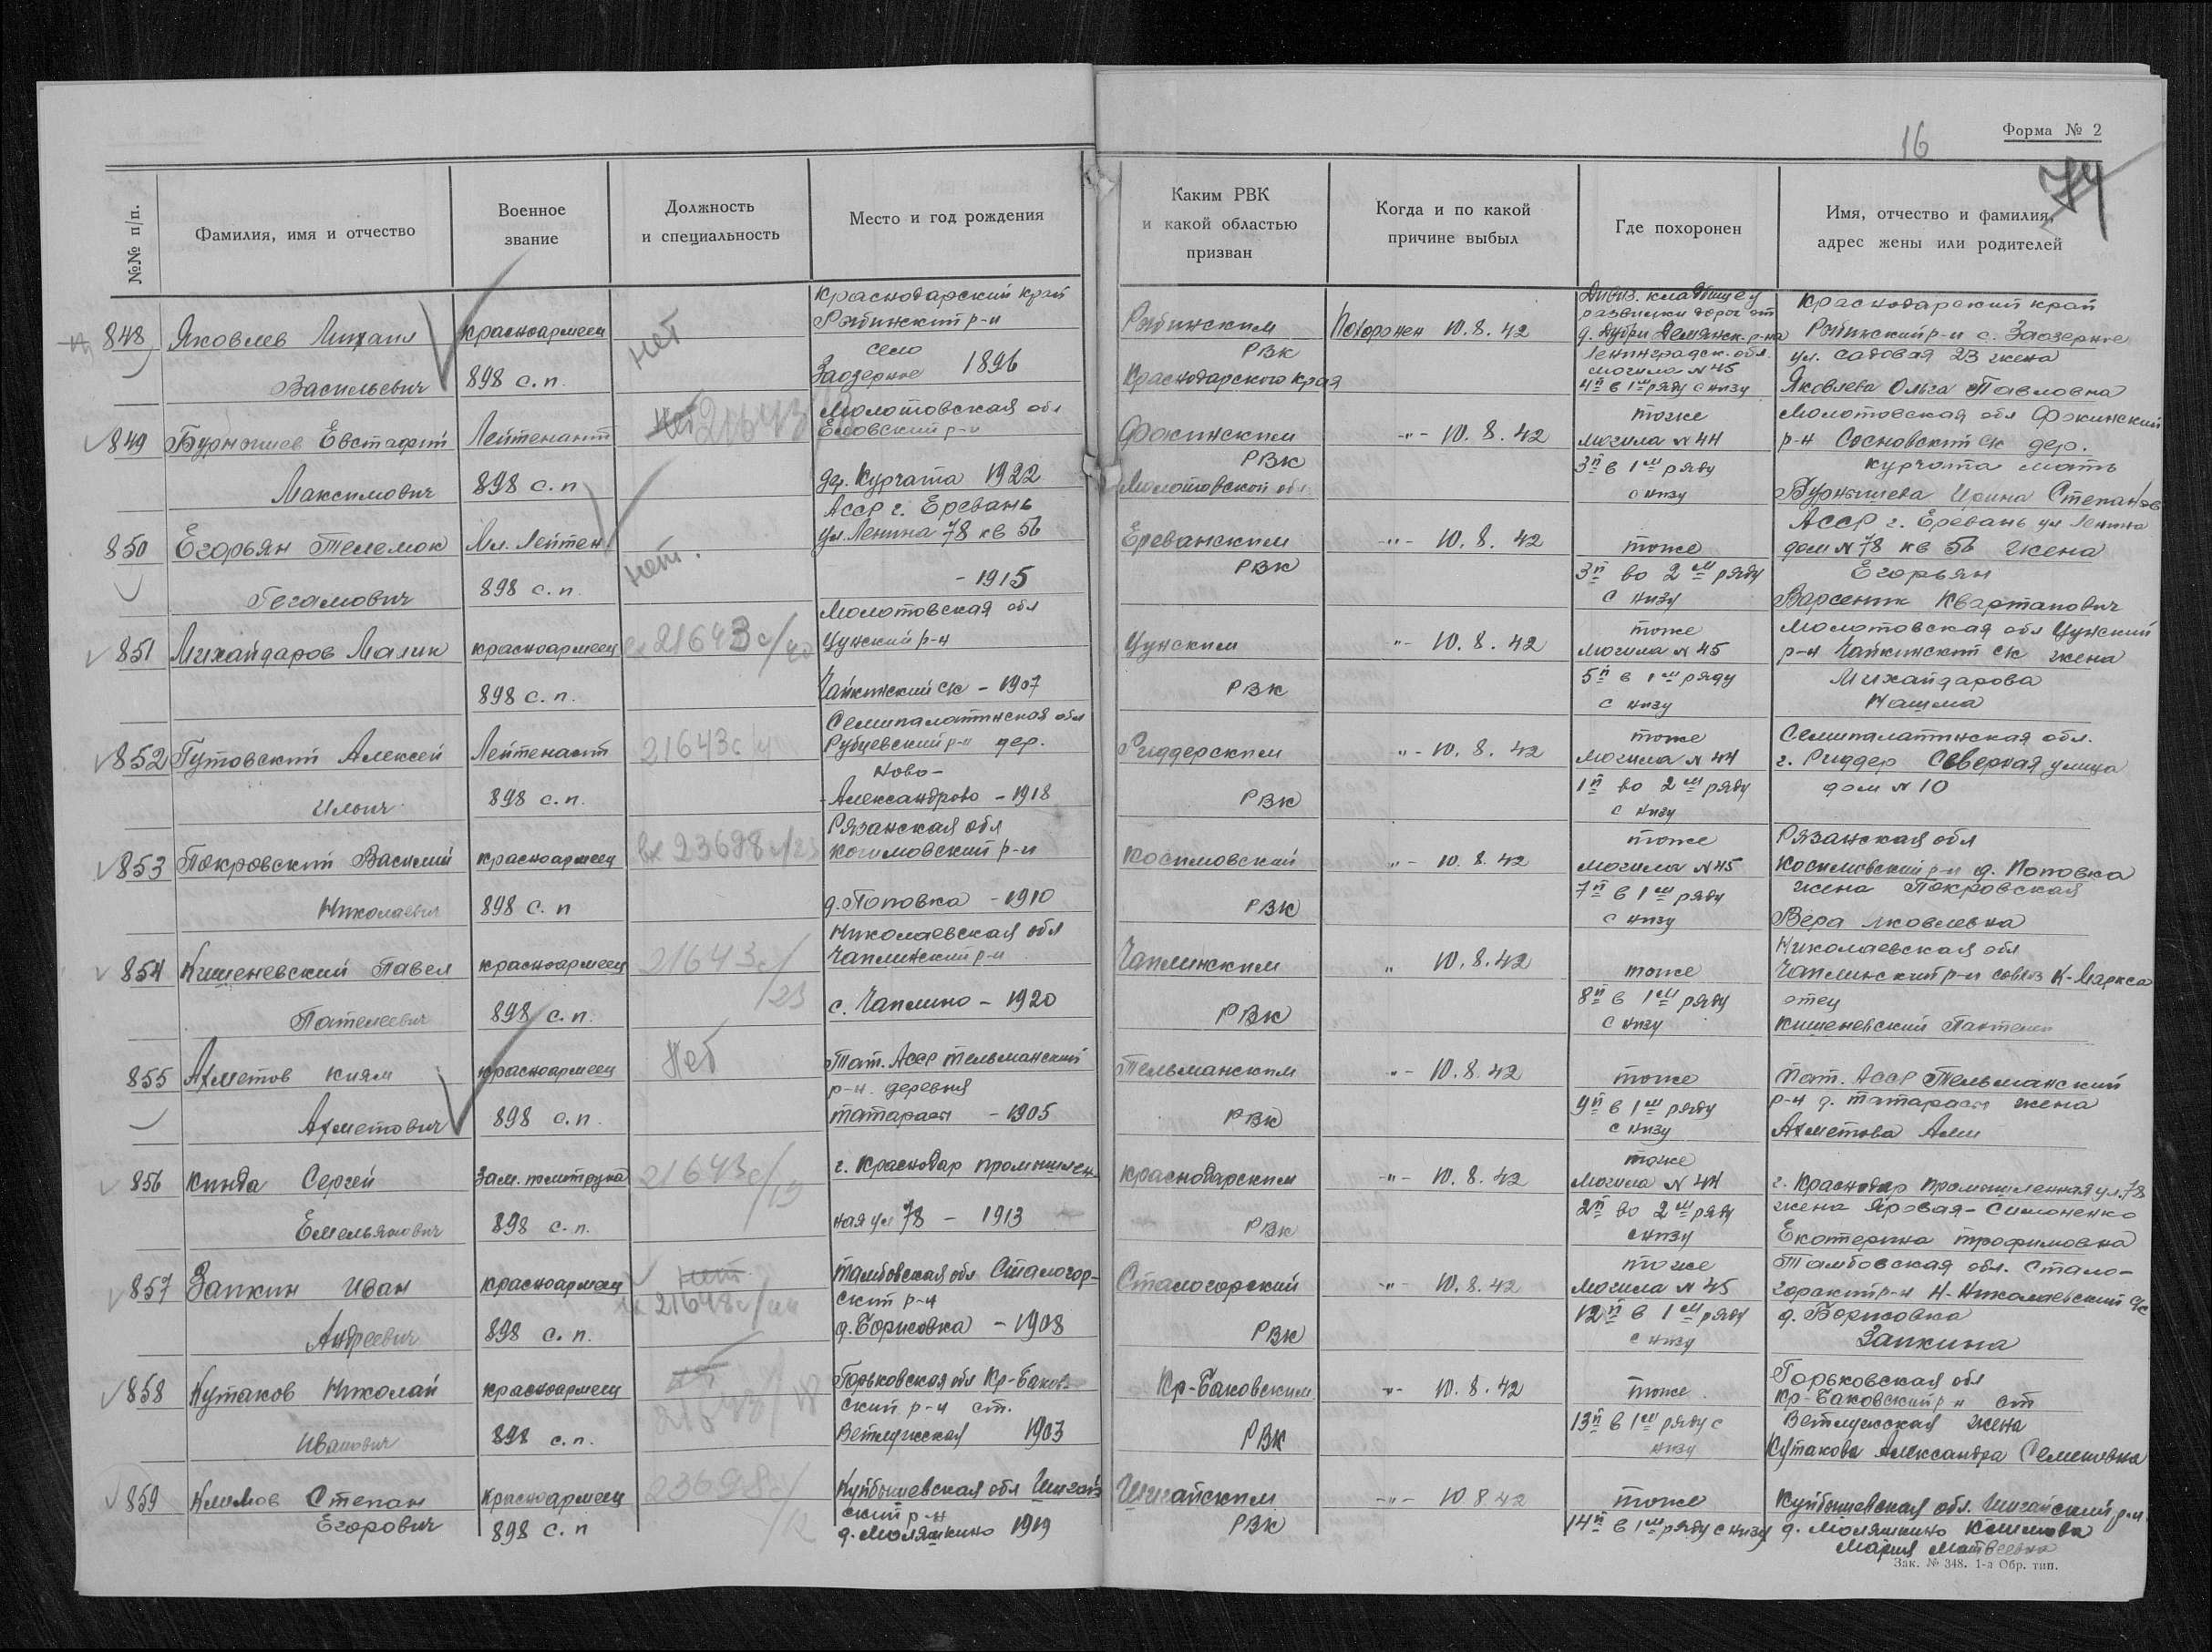 16
Форма № 2
74
№№ п/п.
Фамилия, имя и отчество
Военное звание
Должность и специальность
Место и год рождения
Каким РВК и какой областью призван
Когда и по какой причине выбыл
Где похоронен
Имя, отчество и фамилия, адрес жены или родителей
848
Яковлев Михаил
Васильевич
красноармеец
898 с.п.
нет
Краснодарский край
р-н
село
Заозерное 1896
РВК
Краснодарского края
Похоронен 10.8.42
Дивиз. кладбище у
развилки дорог от
д. Дубри Демянск. р-на
Ленинградск. обл.
могила N 45
4й в 1ш ряду с низу
Краснодарский край
р-н с. Заозерное
ул. садовая 23 жена
Яковлева Ольга Павловна
849
Бурнышев Евстафий
Максимович
Лейтенант
898 с.п
нет 21643
Молотовская обл
Еловский р-н
дер. Курчата 1922
Фокинским
РВК
Молотовской обл
-"- 10.8.42
тоже
могила N 44
3й в 1ш ряду
с низу
Молотовская обл Фокинский
р-н Сосновский ск дер.
курчата мать
Бурнышева Ирина Степанов
850
Егорьян Телемок
Гегамович
Мл. Лейтен
898 с.п.
нет.
АССР г. Еревань
ул Ленина 78 кв 56
- 1915
Ереванским
РВК
-"- 10.8.42
тоже
3й во 2ш ряду
с низу
АССР г. Еревань ул Ленина
дом N 78 кв 56 жена
Егорьян
Варсеник Квартанович
851
Михайдаров Малик
красноармеец
898 с.п.
21643с/
Молотовская обл
Цунский р-н
Чайкинский ск - 1907
Цунским
РВК
"- 10.8.42
тоже
могила N 45
5й в 1ш ряду
с низу
Молотовская обл Цунский
р-н Чайкинский ск жена
Михайдарова
852
Гутовский Алексей
Ильич
Лейтенант
898 с.п.
21643с/ч
Семипалатинская обл
Рубцевский р-н дер.
Ново-
Александрово - 1918
Риддерским
РВК
"- 10.8.42
тоже
Могила N 44
1й во 2ш ряду
с низу
Семипалатинская обл.
г. Риддер Северная улица
дом N 10
853
Покровский Василий
Николаевич
красноармеец
898 с.п
вх 23698с/23
Рязанская обл
косимовский р-н
д. Поповка - 1910
Косимовский
РВК
"- 10.8.42
тоже
могила N 45
7й в 1ш ряду
с низу
Рязанская обл
Косимовский р-н д. Поповка
жена Покровская
Вера Яковлевна
854
Кишеневский Павел
Пателеевич
красноармеец
898 с.п.
21643с/
23
Николаевская обл
Чаплинский р-н
с. Чаплино - 1920
Чаплинским
РВК
" 10.8.42
тоже
8й в 1ш ряду
с низу
Николаевская обл
Чаплинский р-н совхз К-Маркса
отец
Кишеневский
855
Ахметов Киям
Ахметович
красноармеец
898 с.п.
Нет
Тат. АССР Тельманский
р-н деревня
- 1905
Тельманским
РВК
"- 10.8.42
тоже
9й в 1ш ряду
с низу
Тат. АССР Тельманский
р-н д. жена
Ахметова
856
Кинда Сергей
Емельянович
Зам. политрука
898 с.п.
21643с/13
г. Краснодар промышлен
ная ул 78 - 1913
краснодарским
РВК
-"- 10.8.42
тоже
Могила N 44
2й во 2ш ряду
с низу
г. Краснодар промышленная ул. 78
жена Яровая-Симоненко
Екотерина трофимовна
857
Запкин Иван
Андреевич
красноармеец
898 с.п.
нет
21648с/
тамбовская обл Сталогор-
ский р-н
д. Борисовка - 1908
Сталогорский
РВК
-"- 10.8.42
тоже
Могила N 45
12й в 1ш ряду
с низу
Тамбовская обл. Стало-
горский р-н Н-Николаевский с/с
д. Борисовка
Запкина
858
Кутаков Николай
Иванович
красноармеец
898 с.п.
Горьковская обл Кр-Баков
ский р-н ст.
Ветлужская 1903
Кр-Баковским
РВК
"- 10.8.42
тоже
13й в 1ш ряду с
низу
Горьковская обл
Кр-Баковский р-н ст
Ветлужская жена
Кутакова Александра Семеновна
859
Климов Степан
Егорович
Красноармеец
898 с.п
23698с/
12
Куйбышевская обл Шигай
ский р-н
д. Моляшкино 1919
Шигайским
РВК
-"- 10.8.42
тоже
14й в 1ш ряду с низу
Куйбышевская обл. Шигайский р-н
д. Моляшкино Климова
Мария Матвеевна
Зак. № 348. 1-я Обр. тип.